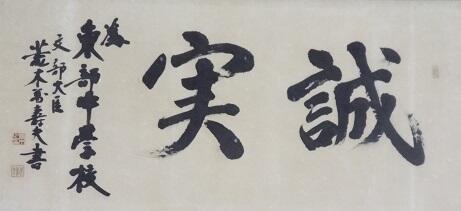 誠実
為
東部中学校
文部大臣
荒木萬寿夫書